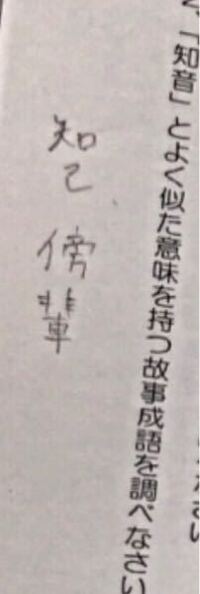 「知音」とよく似た意味を持つ故事成語を調べなさい
知己 傍輩